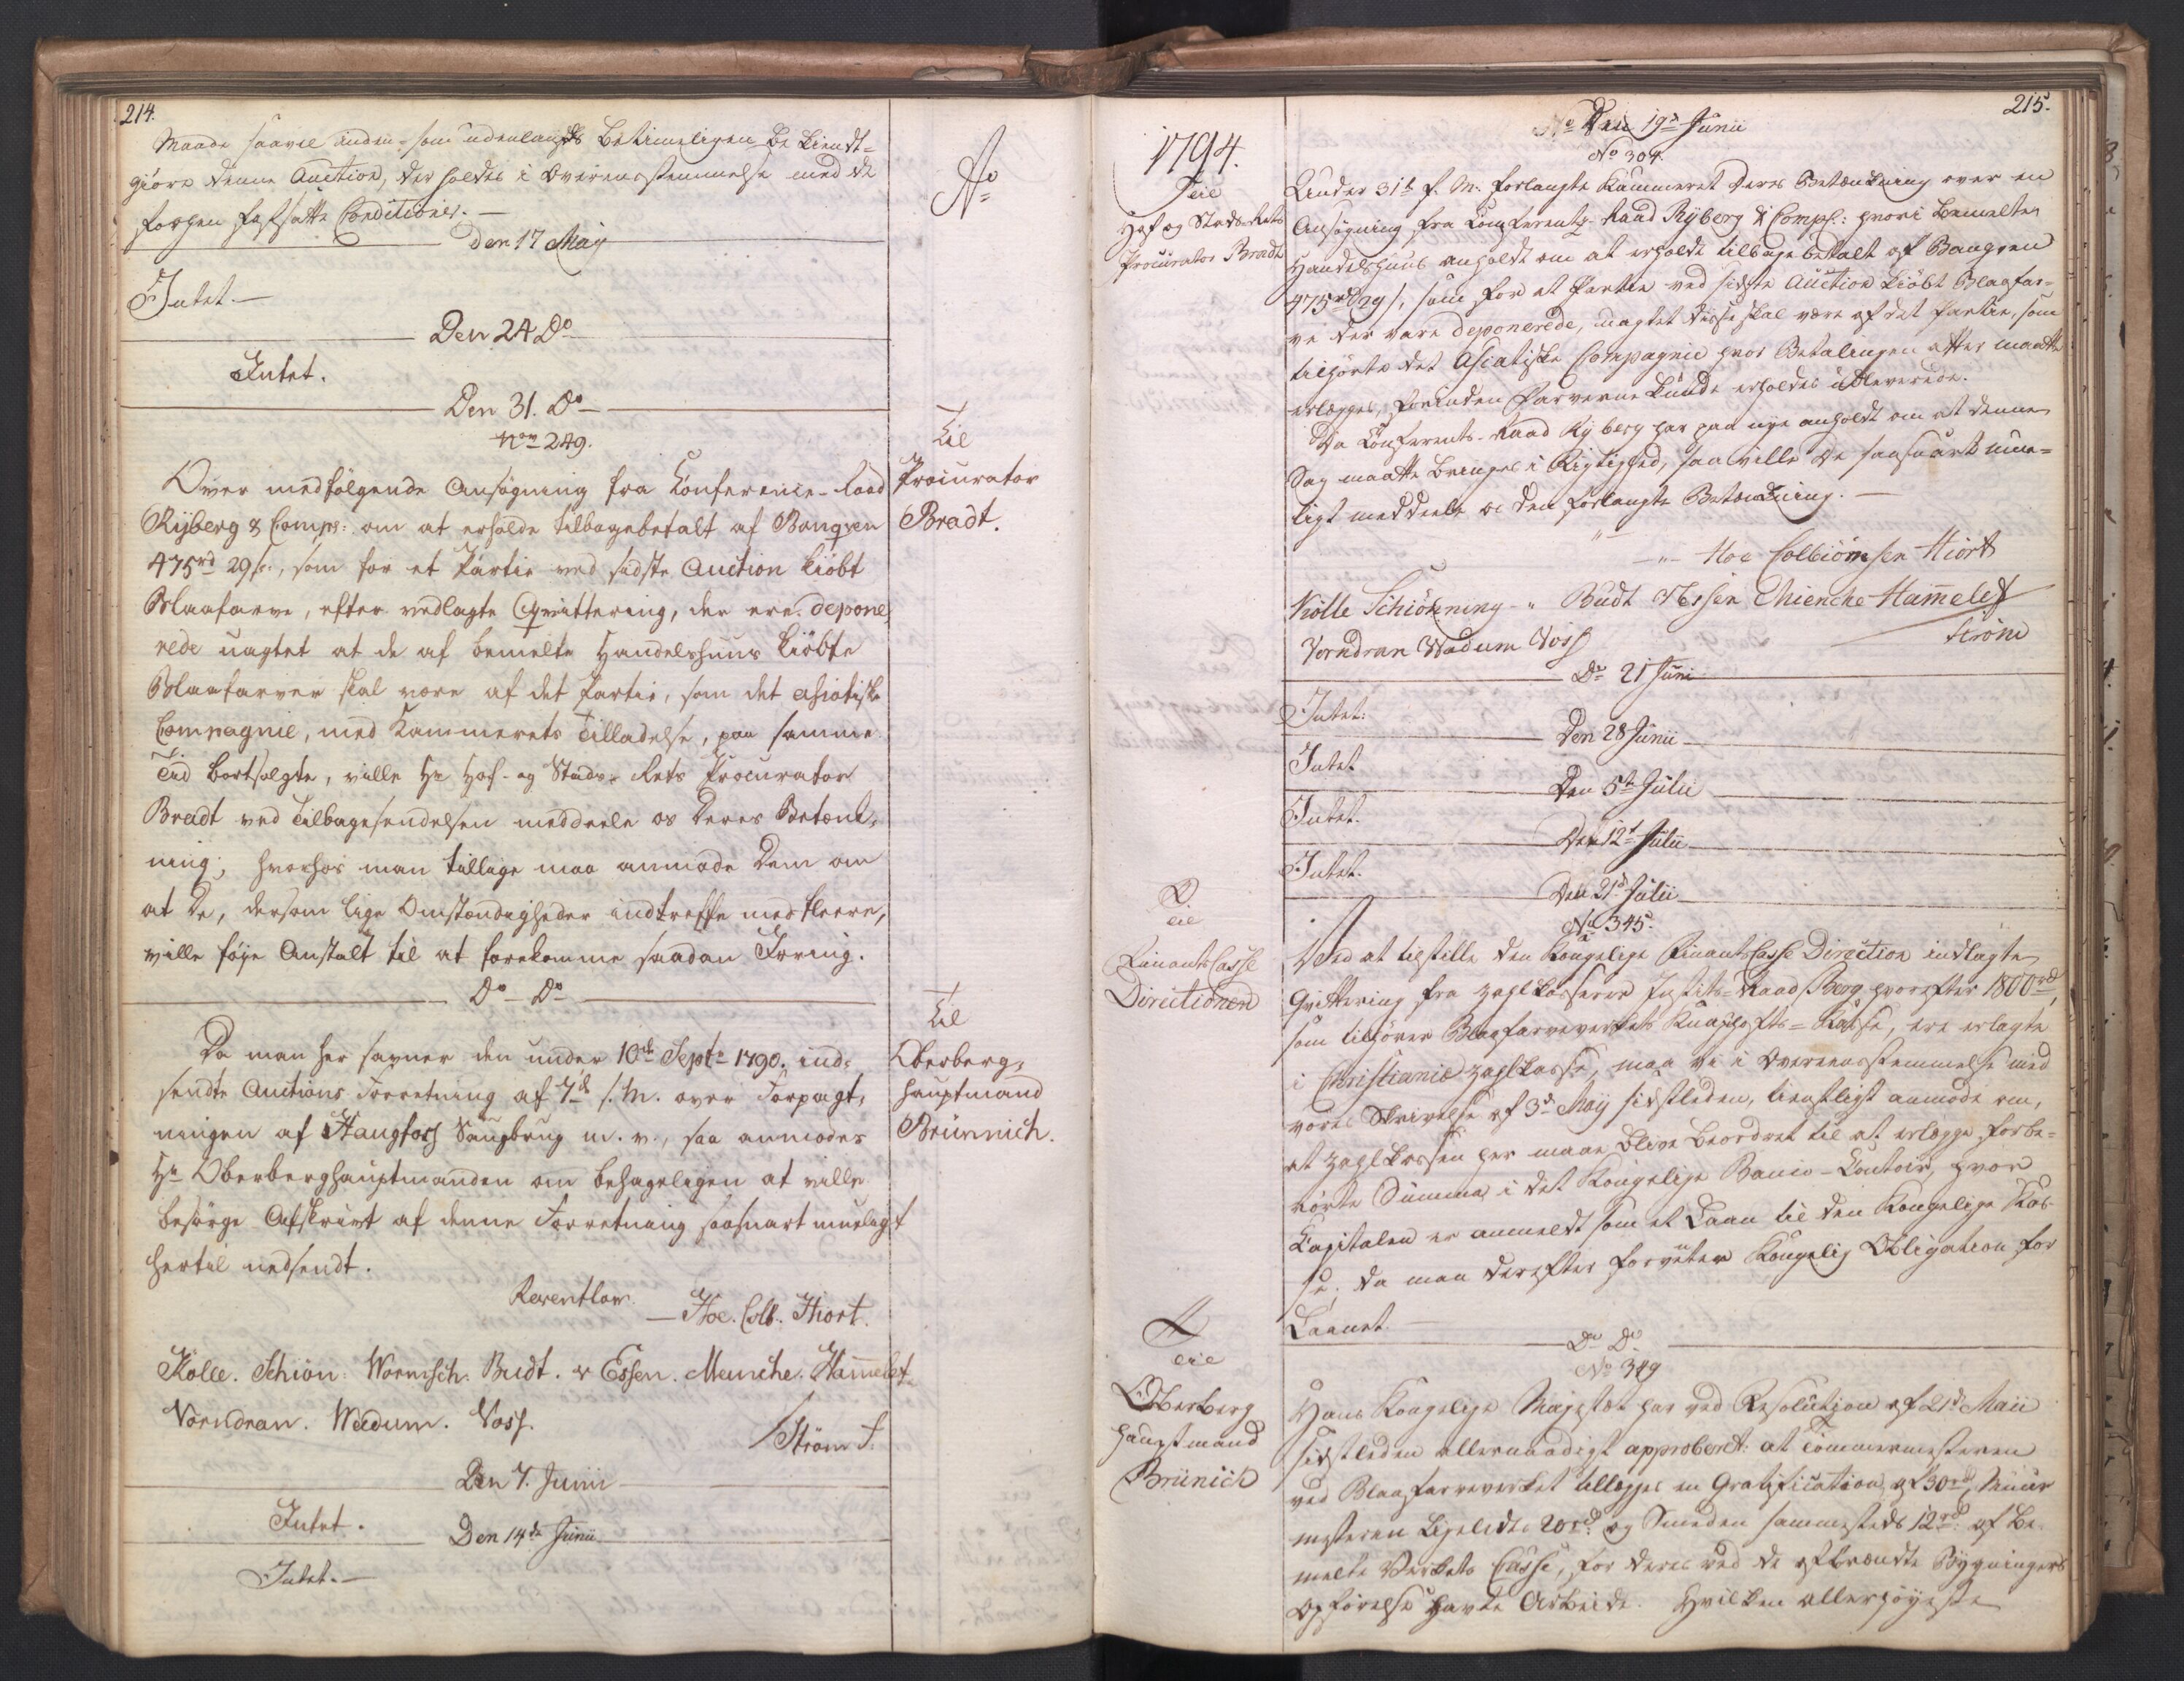 214.
Maade saavel inden- som udenlands betimeligen be kiendt-
giöre denne Auction, der holdes i Overensstemmelse med de
forhen fastsatte Conditioner. —
Den 17 May
Intet. —
Den 24 Do
Intet.
Den 31. Do
No 249.
Over medfölgende Ansögning fra Conference-Raad
Ryberg & Comp: om at erholde tilbagebetalt af Banqven
475rd 29 s., som for et Partie ved sidste Auction kiöbt
Blaafarve, efter vedlagte Qvittering, der ere depone-
rede uagtet at de af bemelte Handelshuus kiöbte
Blaafarver skal være af det Partie, som det asiatiske
Compagnie, med Kammerets Tilladelse, paa samme
Tid bortsolgte, ville Hr Hof- og Stads-Rets Procurator
Bradt ved Tilbagesendelsen meddeele os Deres Betænk-
ning; hvorhos man tillige maa anmode Dem om
at De, dersom lige Omstændigheder indtreffe med fleere,
ville föye Anstalt til at forekomme saadan Irring.
Do - Do
Da man her savner den under 10de Septr 1790. ind-
sendte Auctions Forretning af 7de s. M. over Forpagt-
ningen af Haugfoss Saugbrug m. v., saa anmodes
Hr Oberberghauptmanden om behageligen at ville
besörge Afskrivt af denne Forretning saasnart mueligt
hertil nedsendt.
Reventlow.
— Hoe. Colb. Hiort.
Kölle. Schiön: Wormsch. Budt. v Essen. Meinche. Hammelef.
Vorndran. Wadum. Voss.
Ström T.
Den 7. Junii
Intet.
Den 14de Junii
Intet. —
Ao
Til
Procurator
Bradt.
Til
Oberberg-
hauptmand
Brünnich.
1794.
Til
Hof og Stads-Rets
Procurator Bradt
Til
Finants Casse
Directionen
Til
Oberberg
hauptmand
Brünich
215.
Den 19de Junii
No 304.
Under 31te f. M. forlangte Kammeret Deres Betænkning over en
Ansögning fra Conferentz-Raad Ryberg & Comp: hvori bemelte
Handelshuus anholdt om at erholde tilbagebetalt af Banqven
475rd 29 s, som for et Partie ved sidste Auction kiöbt Blaafar-
ve der vare deponerede, uagtet disse skal være af det Partie, som
tilhörte det Asiatiske Compagnie hvor Betalingen atter maatte
erlægges, forinden Farverne kunde erholdes udleverede.
Da Conferents-Raad Ryberg har paa nye anholdt om at denne
Sag maatte bringes i Rigtighed, saa ville De saasnart mue-
ligt meddeele os den forlangte Betænkning. —
Hoe Colbiörnsen Hiort
Kölle Schiönning " Budt Essen Mienche Hammelef
Vorndran Wadum Voss
Ström
Dn 21 Juni
Intet:
Den 28 Junii
Intet
Den 5te Julii
Intet.
Den 12te Julii
Intet.
Den 21de Julii
No 345.
Ved at tilstille den Kongelige Finants Casse Direction indlagte
Qvittering fra Zahlkasserer Justits-Raad Berg hvorefter 1800rd,
som tilhörer Blaafarveverkets Knapskafts-Kasse, ere erlagte
i Christiania Zahlkasse, maa vi i Overensstemmelse med
vores Skrivelse af 3de May sidstleden, tienstligst anmode om,
at Zahlkassen her maae blive beordret til at erlægge forbe-
rörte Summa i det Kongelige Banco-Contoir, hvor
Capitalen er anmeldt som et Laan til den Kongelige Kas-
se; da man derefter forventer Kongelig Obligation for
Laanet. —
Do Do
No 349
Hans Kongelige Majestæt har ved Resolution af 21de Maii
sidstleden allernaadigst approberet: at Tömmermesteren
ved Blaafarveverket tillægges en Gratification af 30rd, Muur
mesteren ligeledes 20rd: og Smeden sammesteds 12rd: af be-
melte Verkets Casse, for deres ved de afbrændte Bygningers
Opförelse havte Arbeide. Hvilken allerhöyeste